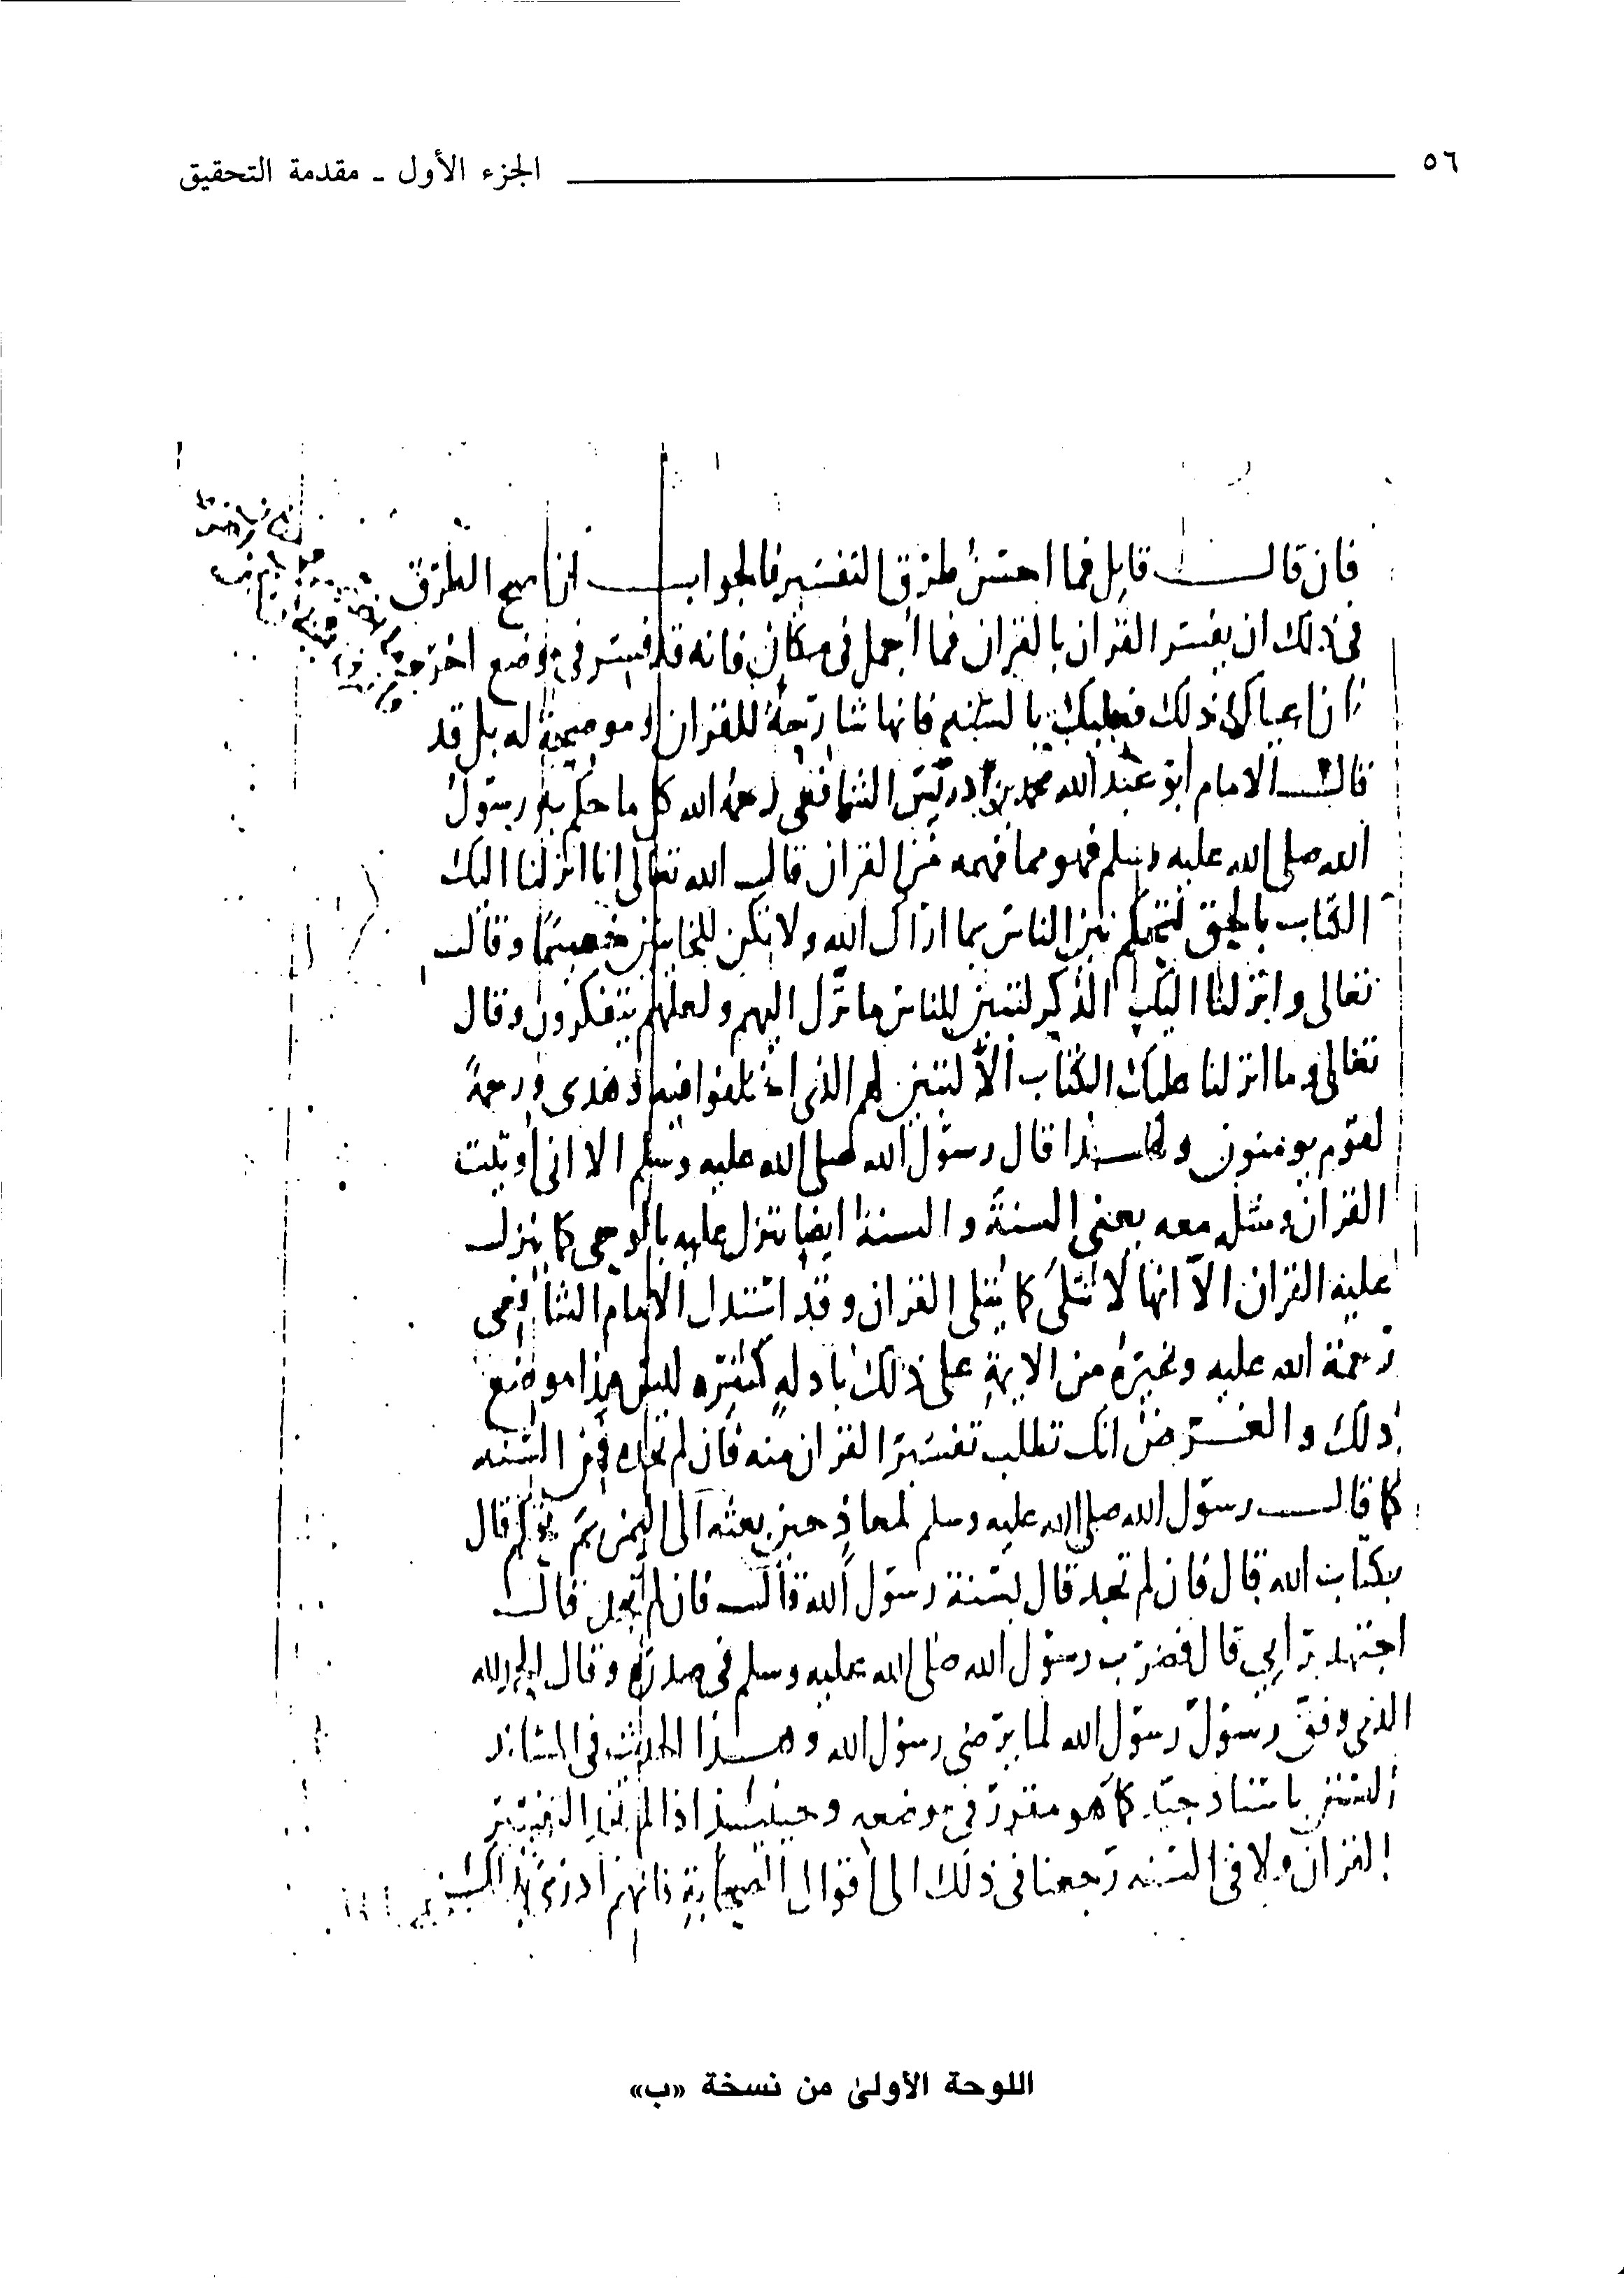 ٥٦
الجزء الأول - مقدمة التحقيق
فان قال قايل فما احسن طرق التفسير فالجواب ان اصح الطرق
فى ذلك ان يفسر القران بالقران فما اجمل فى مكان فانه قد فسر فى موضع اخر
ذلك فعليك بالسنه فانها شارحة للقران وموضحة له بل قد
قال الامام ابو عبد الله محمد بن ادريس الشافعى رحمه الله كل ما حكم به رسول
الله صلى الله عليه وسلم فهو مما فهمه من القران قال الله تعالى انا انزلنا اليك
الكتاب بالحق لتحكم بين الناس بما اراك الله ولا تكن للخاينين خصيما وقال
تعالى وانزلنا اليك الذكر لتبين للناس ما نزل اليهم ولعلهم يتفكرون وقال
تعالى وما انزلنا عليك الكتاب الا لتبين لهم الذى اختلفوا فيه وهدى ورحمة
لقوم يومنون ولهذا قال رسول الله صلى الله عليه وسلم الا انى اوتيت
القران ومثله معه يعنى السنة والسنة ايضا تنزل عليه بالوحى كما ينزل
عليه القران الا انها لا تتلى كما يتلى القران وقد استدل الامام الشافعى
رحمة الله عليه وغيره من الايمة على ذلك بادلة كثيره ليس هذا موضع
ذلك والغرض انك تطلب تفسير القران منه فان لم تجده فمن السنه
كما قال رسول الله صلى الله عليه وسلم لمعاذ حين بعثه الى اليمن بم تحكم قال
بكتاب الله قال فان لم تجد قال بسنة رسول الله قال فان لم تجد قال
اجتهد برايى قال فضرب رسول الله صلى الله عليه وسلم فى صدره وقال الحمد لله
الذى وفق رسول رسول الله لما يرضى رسول الله وهذا الحديث فى المساند
والسنن باسناد جيد كما هو مقرر فى موضعه وحينئذ اذا لم نجد التفسير
القران ولا فى السنه رجعنا فى ذلك الى اقوال الصحابة فانهم ادرى
اللوحة الأولى من نسخة «ب»